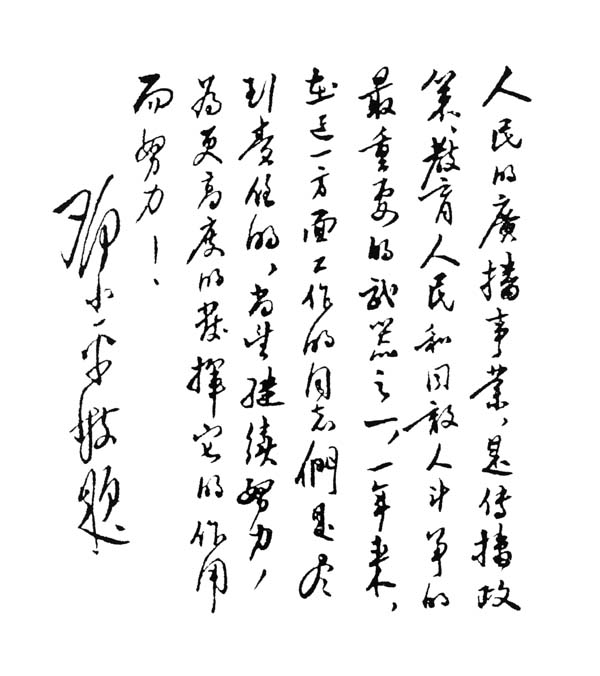 人民的廣播事業，是传播政
策、教育人民和同敵人斗争的
最重要的武器之一，一年来，
在这一方面工作的同志們是尽
到責任的，尚望继续努力，
為更高度的發揮它的作用
而努力！
邓小平敬题